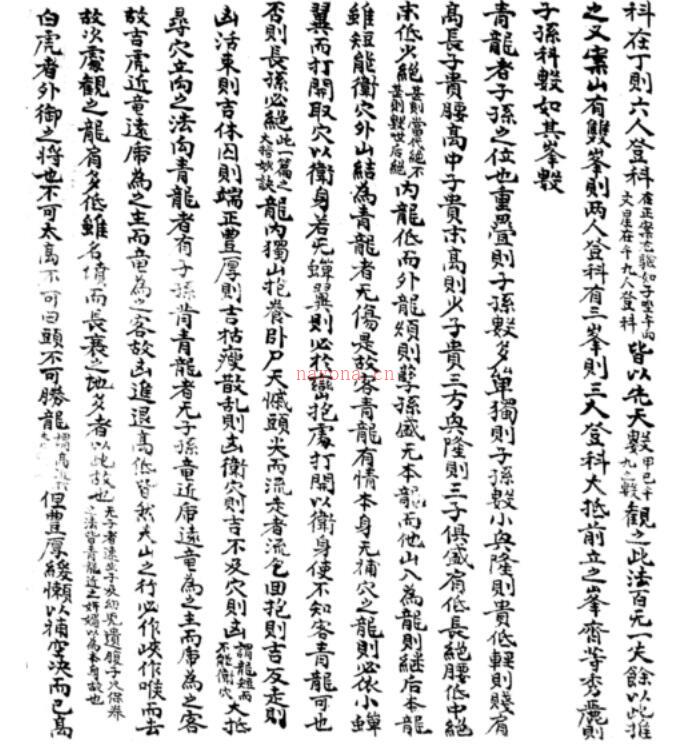 科在丁則六人登科在正案尤驗如子坐午向文星在午九人登科皆以先天數甲己子午九之數觀之此法百无一失餘以此推
之又案山有雙峯則两人登科有三峯則三人登科大抵前立之峯齊等秀麗則
子孫科數如其峯數
青龍者子孫之位也重疊則子孫數多單獨則子孫數小興隆則貴低輕則賤肩
高長子貴腰高中子貴末高則少子貴三方興隆則三子俱盛肩低長絕腰低中絕
末低少絕甚則當代絕不甚則數世后絕內龍低而外龍煩則孽孫盛无本龍而他山入為龍則継后本龍
雖短能衛穴外山結為青龍者无傷是故客青龍有情本身无補穴之龍則必依小蟬
翼而打開取穴以衛身若无蟬翼則必於巒抱處打開以衛身使不知客青龍可也
否則長孫必絕此一篇之大捂妙訣龍內獨山抱養卧尸天慽頭尖而流走者流色回抱則吉反走則
凶活東則吉休囚則端正豊厚則吉枯瘦散乱則凶衛穴則吉不及穴則凶謂龍短而不能衛穴大抵
尋穴立向之法向青龍者有子孫背青龍者无子孫竜近席遠竜為之主而席為之客
故吉虎近竜遠席為之主而竜為之客故凶進退高低皆然夫山之行必作峽作喉而去
故次處觀之龍肩多低雖名墳而長衰之地多者以此故也无子者遠生子及幼兒遺腹子之法皆青龍近之姸媚以為本身故也
白虎者外御之将也不可太高不可曰頭不可勝龍但豊厚緩懶以補空决而已高
narona.cn